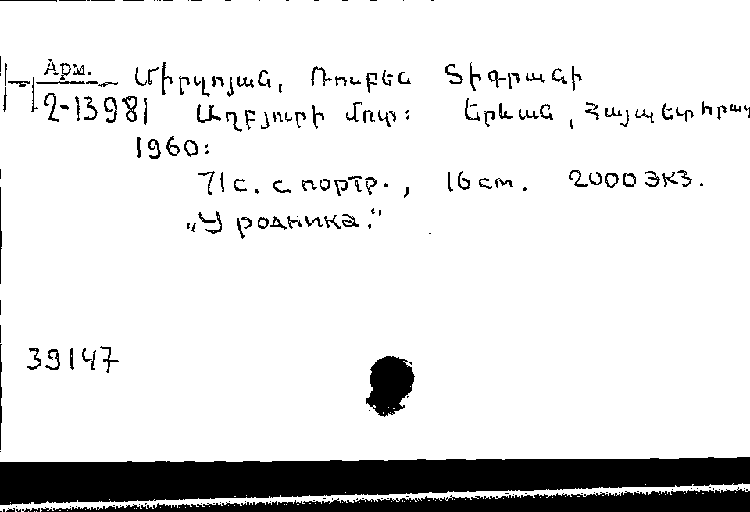 Арм. Միրզոյան, Ռուբեն Տիգրանի
2-13981 Աղբյուրի մոտ: Երևան, Հայպետհրատ
1960:
71 с. с портр., 16 см. 2000 экз.
„У родника.“
39147